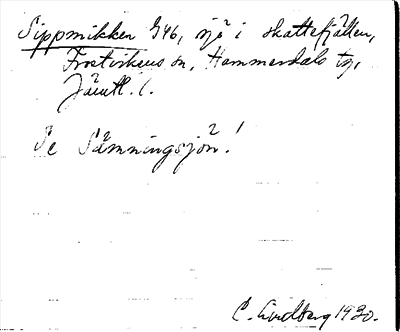 Sippmikken 946, sjö i skattefjällen,
Frostvikens sn, Hammerdals tg,
Jämtl. l.
Se Sämningsjön!
C. Lindberg 1930.